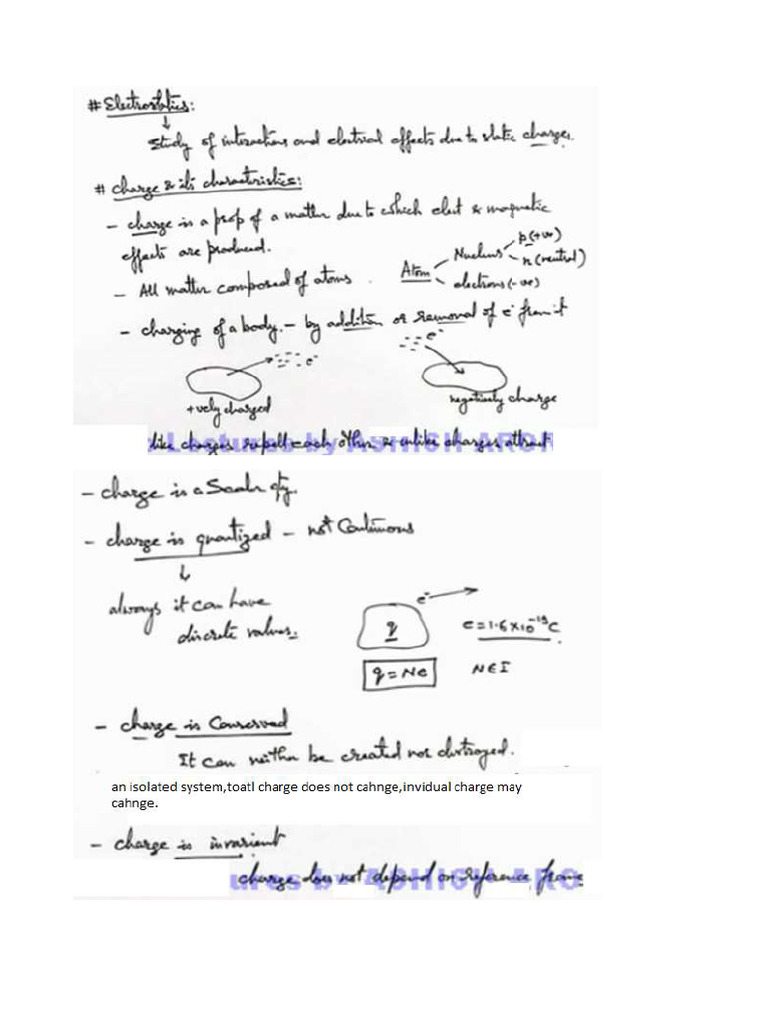 # Electrostatics:
Study of interactions and electrical effects due to static charges.
# Charge & its characteristics:
- charge is a prop of a matter due to which elect & magnetic
effects are produced.
Atom
Nucleus
p(+ve)
n(neutral)
electrons(-ve)
- All matter composed of atoms.
- charging of a body. - by addition or removal of e⁻ from it
e⁻
e⁻
+vely charged
negatively charge
like charges repell each other & unlike charges attract
Lectures by ASHISH AROR
- charge is a Scalar qty.
- charge is quantized - not Continuous
always it can have
discrete values.
e⁻
q
e=1.6×10⁻¹⁹C
q=Ne
N∈I
- charge is Conserved
It can neither be created nor destroyed.
an isolated system,toatl charge does not cahnge,invidual charge may
cahnge.
- charge is invarient
charge does not depend on reference frame